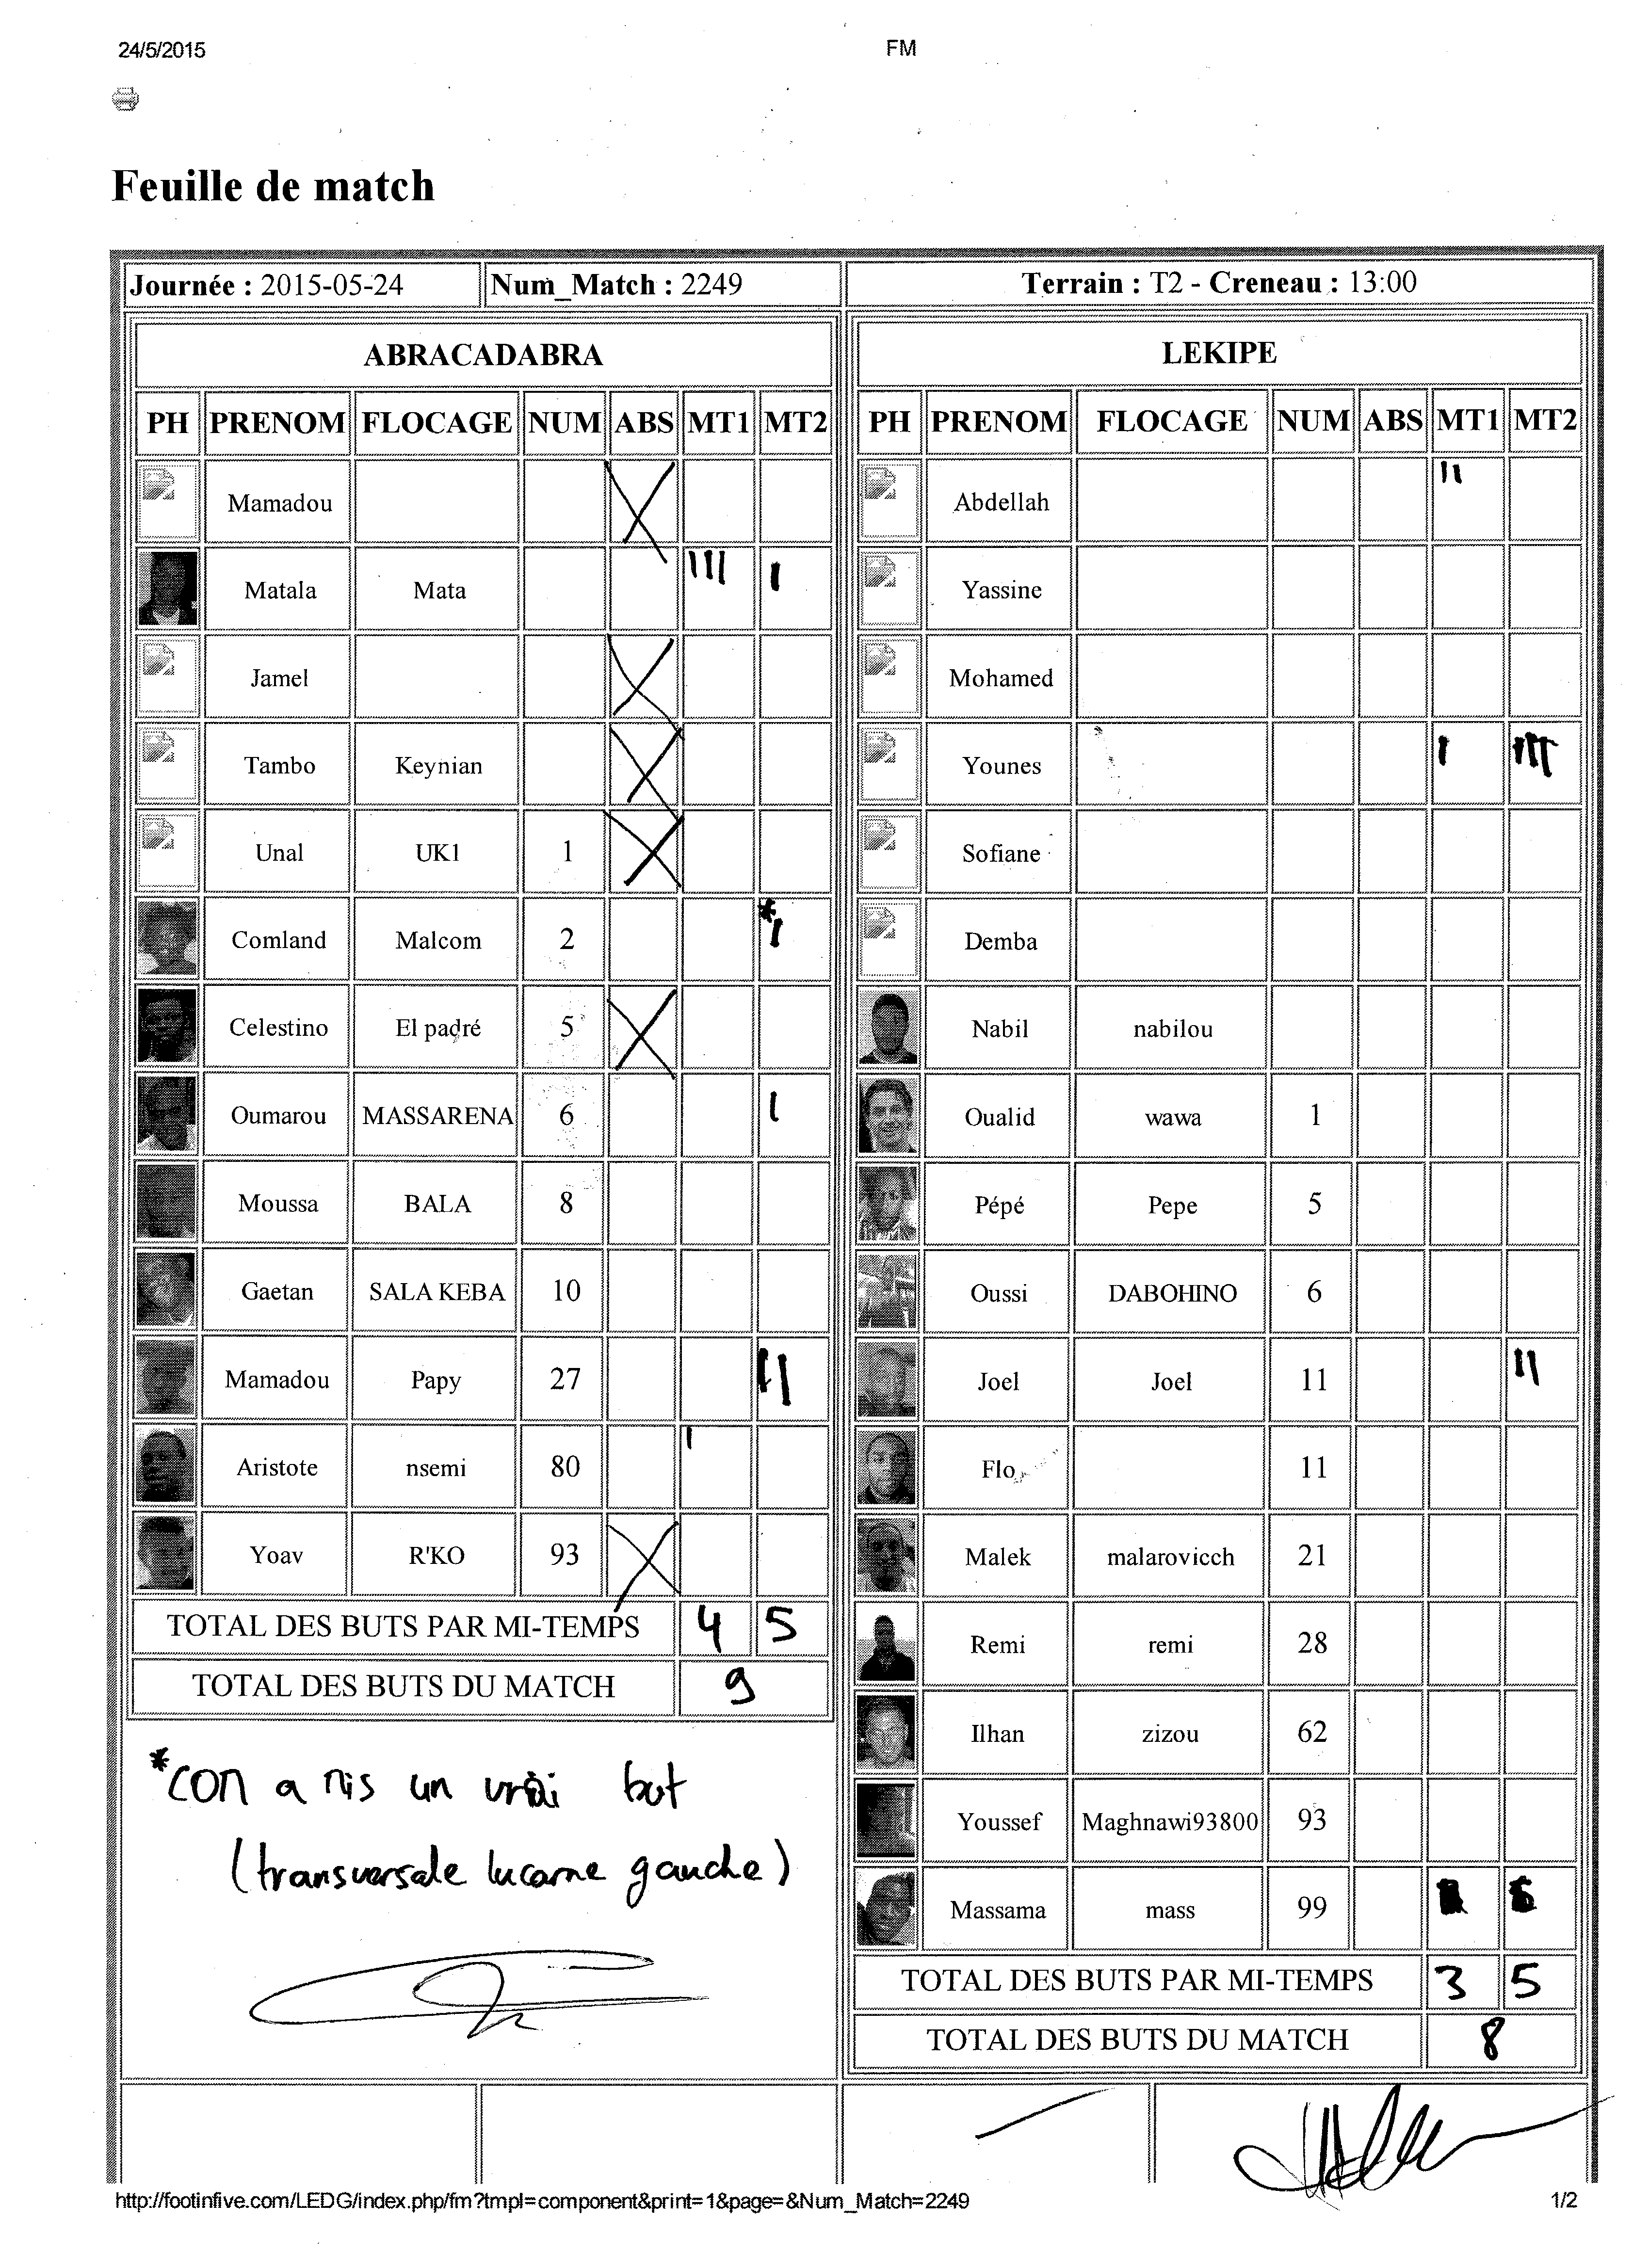 24/5/2015 FM
Feuille de match
Journée : 2015-05-24 Num_Match : 2249 Terrain : T2 - Creneau : 13:00
ABRACADABRA
PH PRENOM FLOCAGE NUM ABS MT1 MT2
Mamadou X
Matala Mata III I
Jamel X
Tambo Keynian X
Unal UK1 1 X
Comland Malcom 2 *I
Celestino El padré 5 X
Oumarou MASSARENA 6 I
Moussa BALA 8
Gaetan SALA KEBA 10
Mamadou Papy 27 II
Aristote nsemi 80 I
Yoav R'KO 93 X
TOTAL DES BUTS PAR MI-TEMPS 4 5
TOTAL DES BUTS DU MATCH 9
*CON a mis un vrai but
(transversale lucarne gauche)
LEKIPE
PH PRENOM FLOCAGE NUM ABS MT1 MT2
Abdellah II
Yassine
Mohamed
Younes I III
Sofiane
Demba
Nabil nabilou
Oualid wawa 1
Pépé Pepe 5
Oussi DABOHINO 6
Joel Joel 11 II
Flo 11
Malek malarovicch 21
Remi remi 28
Ilhan zizou 62
Youssef Maghnawi93800 93
Massama mass 99
TOTAL DES BUTS PAR MI-TEMPS 3 5
TOTAL DES BUTS DU MATCH 8
http://footinfive.com/LEDG/index.php/fm?tmpl=component&print=1&page=&Num_Match=2249 1/2